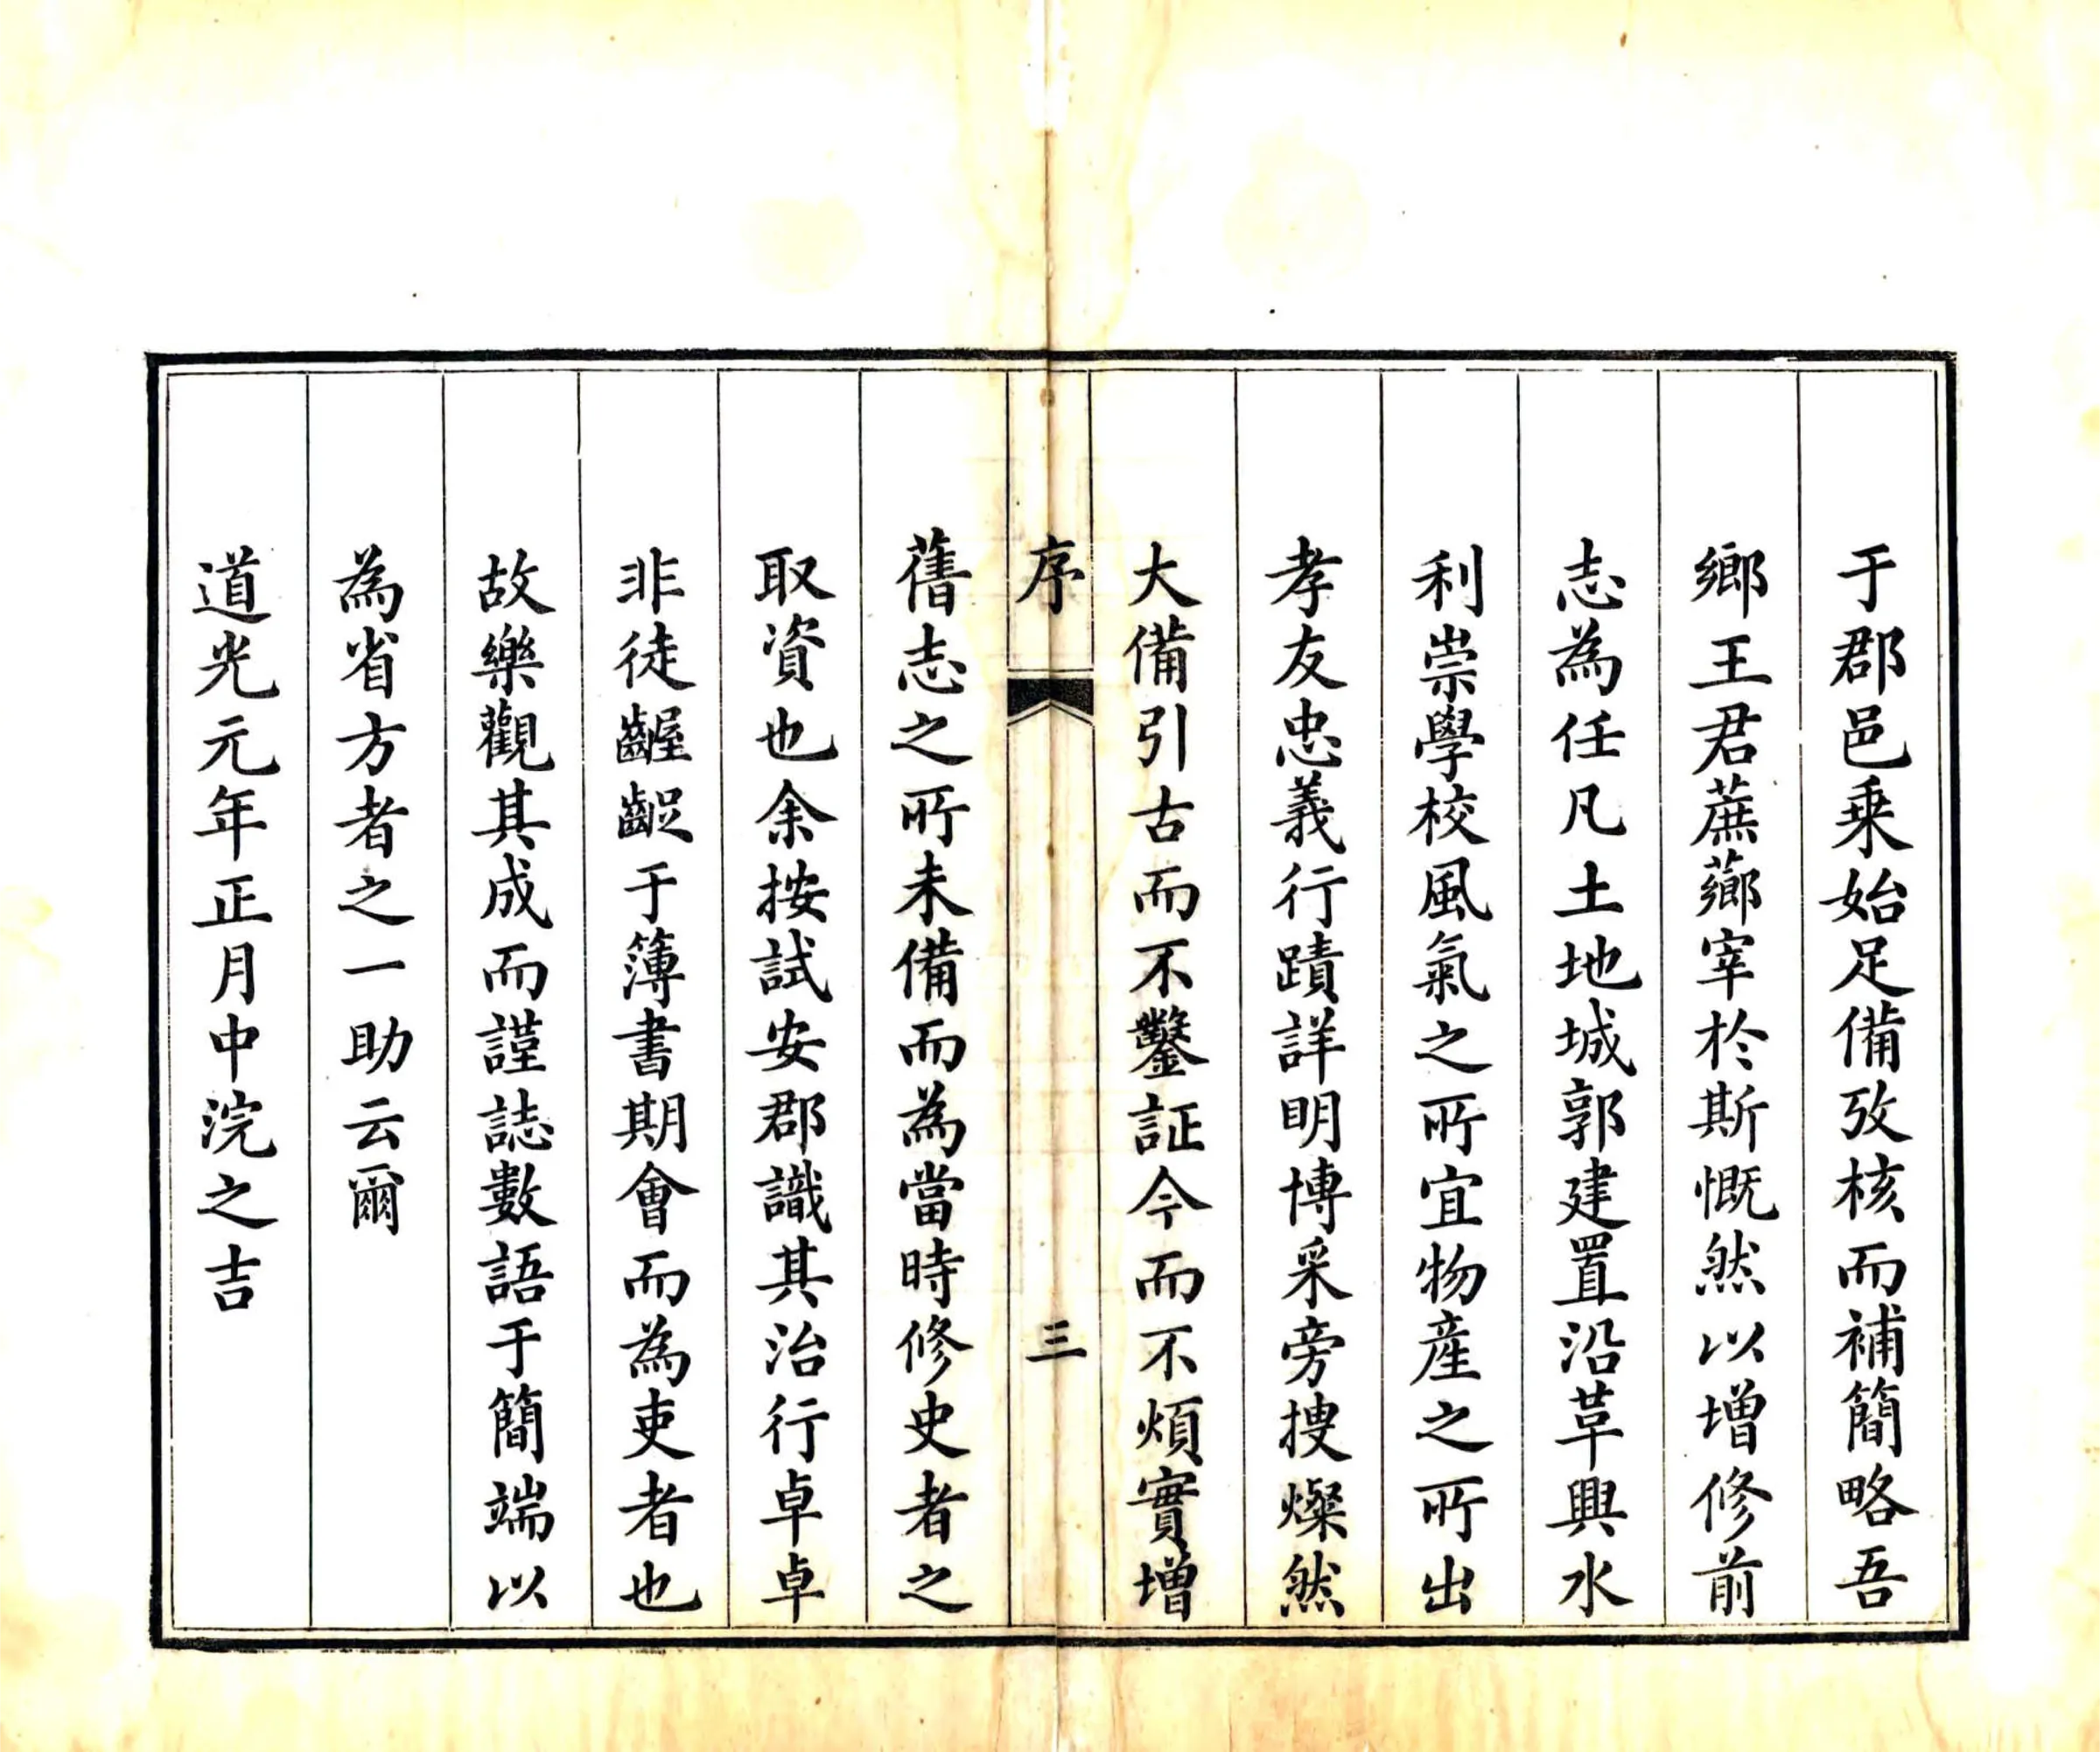 于郡邑乗始足備攷核而補簡略吾
鄉王君蔗薌宰於斯慨然以增修前
志為任凡土地城郭建置沿革興水
利崇學校風氣之所宜物産之所出
孝友忠義行蹟詳明博采旁搜燦然
大備引古而不鑿証今而不煩實增
序
三
舊志之所未備而為當時修史者之
取資也余按試安郡識其治行卓卓
非徒齷齪于簿書期會而為吏者也
故樂觀其成而謹誌數語于簡端以
為省方者之一助云爾
道光元年正月中浣之吉